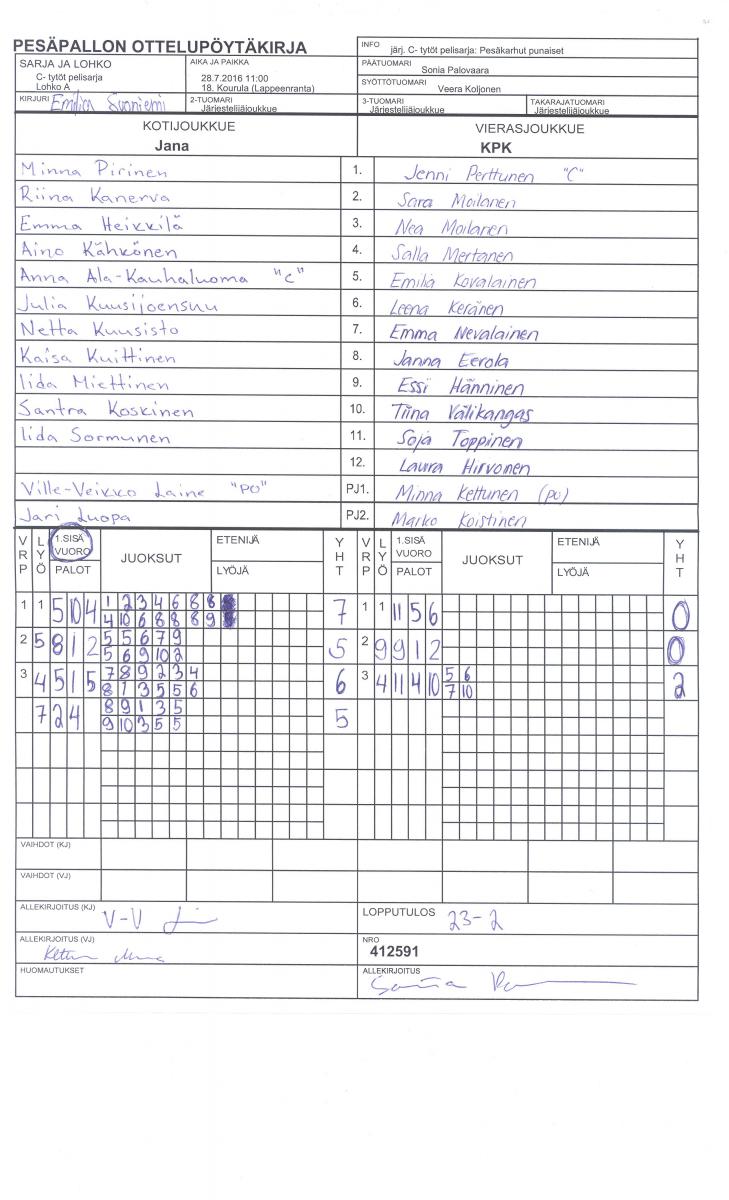 PESÄPALLON OTTELUPÖYTÄKIRJA
INFO järj. C- tytöt pelisarja: Pesäkarhut punaiset
SARJA JA LOHKO
C- tytöt pelisarja
Lohko A
AIKA JA PAIKKA
28.7.2016 11:00
18. Kourula (Lappeenranta)
PÄÄTUOMARI
Sonia Palovaara
SYÖTTÖTUOMARI
Veera Koljonen
KIRJURI Emilia Suoniemi
2-TUOMARI
Järjestelijäjoukkue
3-TUOMARI
Järjestelijäjoukkue
TAKARAJATUOMARI
Järjestelijäjoukkue
KOTIJOUKKUE VIERASJOUKKUE
Jana KPK
Minna Pirinen 1. Jenni Perttunen "C"
Riina Kanerva 2. Sara Moilanen
Emma Heikkilä 3. Nea Moilanen
Aino Kähkönen 4. Salla Mertanen
Anna Ala-Kauhaluoma "C" 5. Emilia Kovalainen
Julia Kuusijoensuu 6. Leena Keränen
Netta Kuusisto 7. Emma Nevalainen
Kaisa Kuittinen 8. Janna Eerola
Iida Miettinen 9. Essi Hänninen
Santra Koskinen 10. Tiina Välikangas
Iida Sormunen 11. Soja Toppinen
12. Laura Hirvonen
Ville-Veikko Laine "PO" PJ1. Minna Kettunen (PU)
Jari Luopa PJ2. Marko Koistinen
VRP LYÖ 1.SISÄ VUORO PALOT JUOKSUT ETENIJÄ LYÖJÄ YHT VRP LYÖ 1.SISÄ VUORO PALOT JUOKSUT ETENIJÄ LYÖJÄ YHT
1 1 5 10 4 1 2 3 4 6 8 8 7 1 1 11 5 6 0
4 10 6 8 8 8 9
2 5 8 1 2 5 5 6 7 9 5 2 9 9 1 2 0
5 6 9 10 2
3 4 5 1 5 7 8 9 2 3 4 6 3 4 11 4 10 5 6 2
8 1 3 5 5 6 7 10
7 2 4 8 9 1 3 5 5
9 10 3 5 5
VAIHDOT (KJ)
VAIHDOT (VJ)
ALLEKIRJOITUS (KJ) V-V
LOPPUTULOS 23-2
ALLEKIRJOITUS (VJ)
NRO
412591
HUOMAUTUKSET
ALLEKIRJOITUS